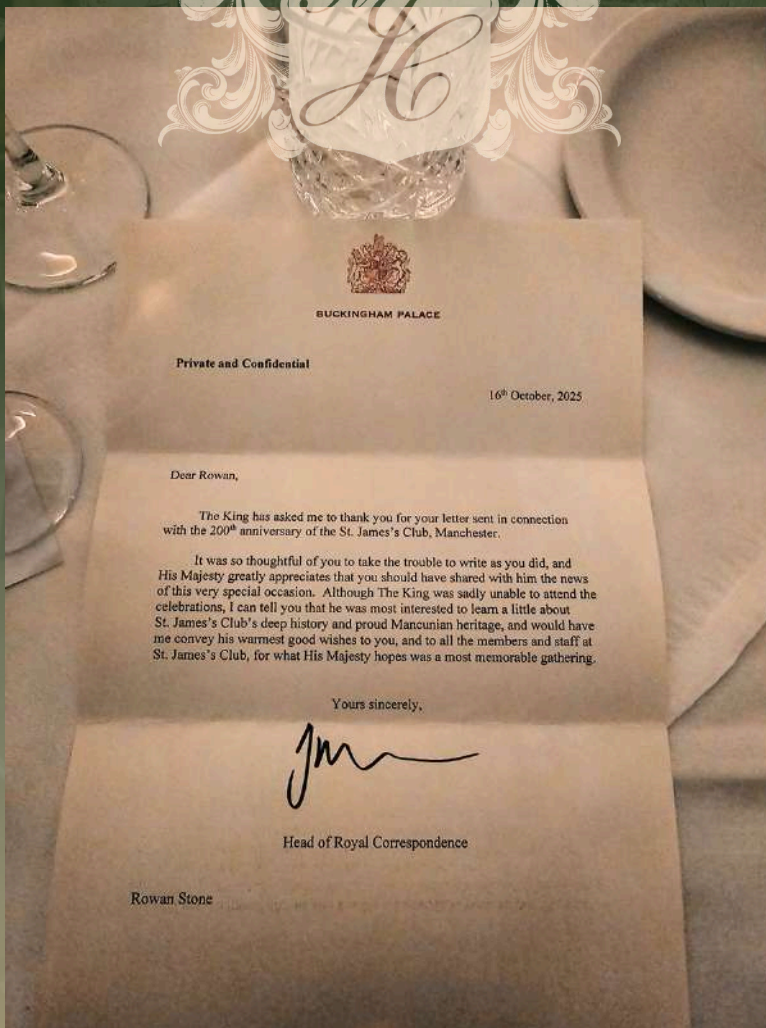 BUCKINGHAM PALACE
Private and Confidential
16th October, 2025
Dear Rowan,
The King has asked me to thank you for your letter sent in connection
with the 200th anniversary of the St. James's Club, Manchester.
It was so thoughtful of you to take the trouble to write as you did, and
His Majesty greatly appreciates that you should have shared with him the news
of this very special occasion. Although The King was sadly unable to attend the
celebrations, I can tell you that he was most interested to learn a little about
St. James's Club's deep history and proud Mancunian heritage, and would have
me convey his warmest good wishes to you, and to all the members and staff at
St. James's Club, for what His Majesty hopes was a most memorable gathering.
Yours sincerely,
Head of Royal Correspondence
Rowan Stone